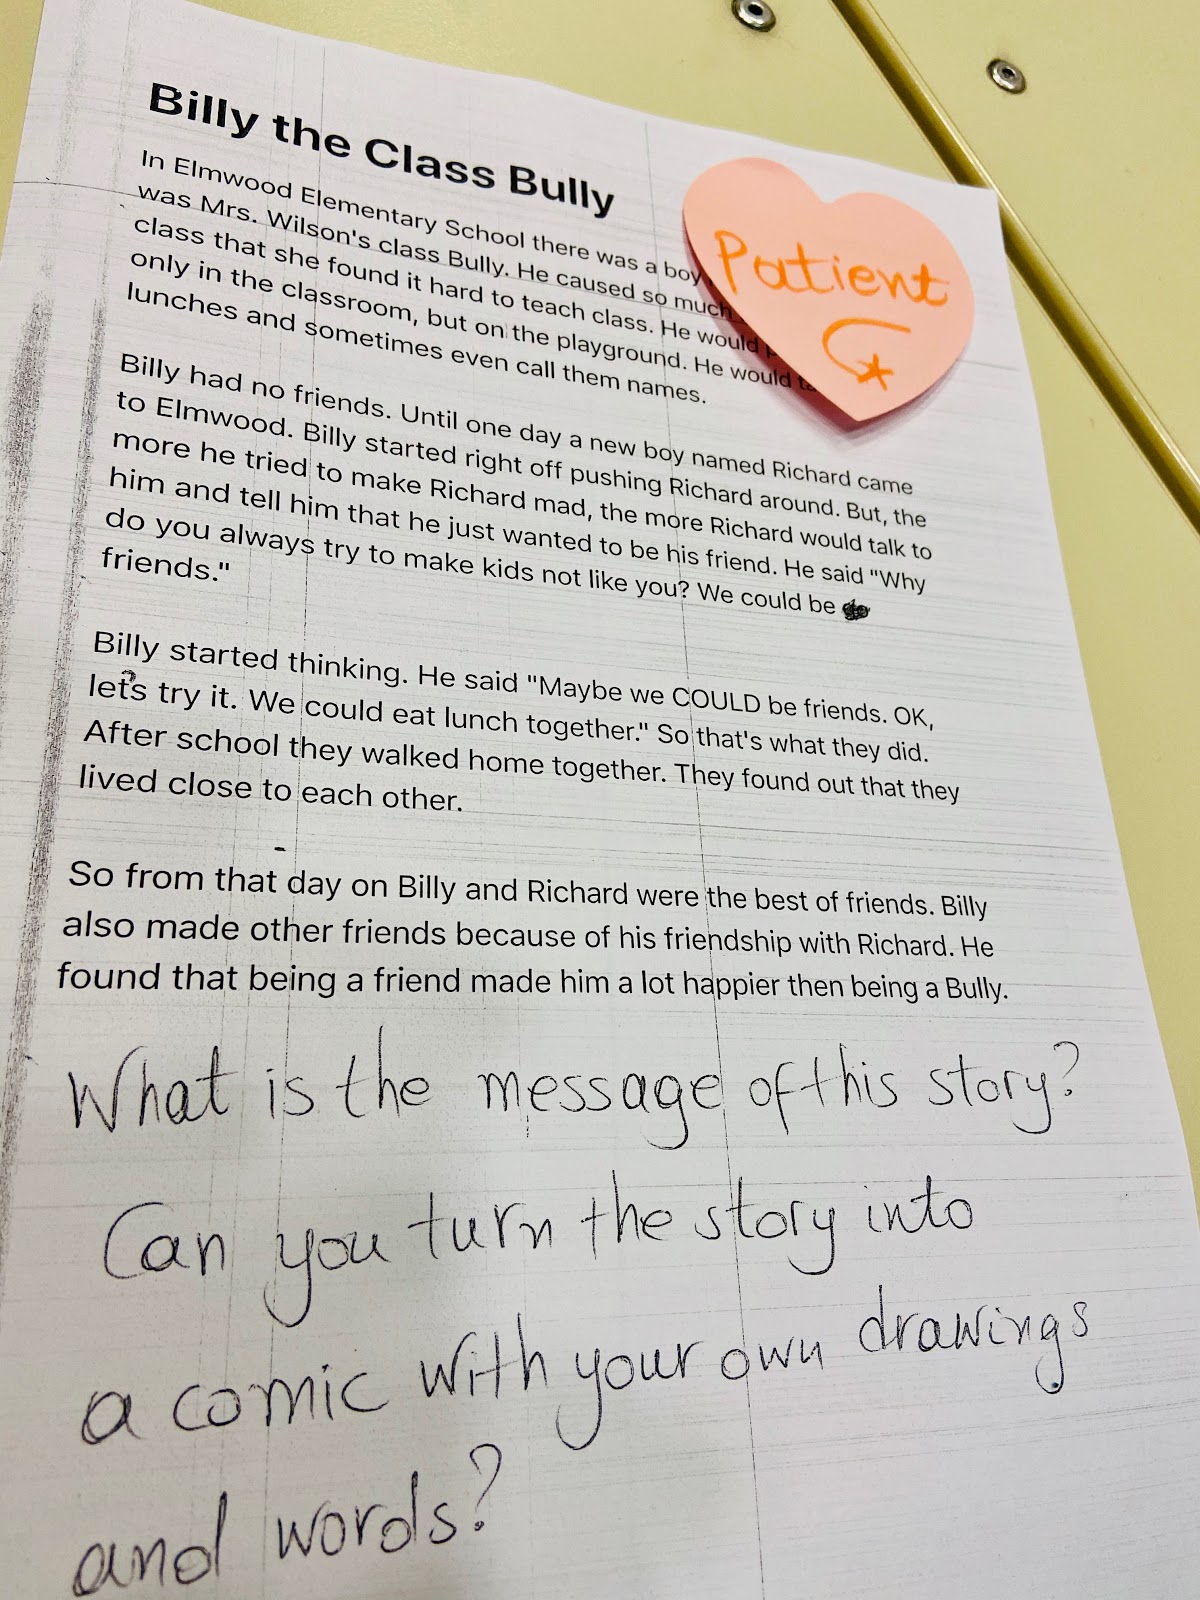 Billy the Class Bully
In Elmwood Elementary School there was a boy
was Mrs. Wilson's class Bully. He caused so much
class that she found it hard to teach class. He would
only in the classroom, but on the playground. He would
lunches and sometimes even call them names.
Patient
Billy had no friends. Until one day a new boy named Richard came
to Elmwood. Billy started right off pushing Richard around. But, the
more he tried to make Richard mad, the more Richard would talk to
him and tell him that he just wanted to be his friend. He said "Why
do you always try to make kids not like you? We could be
friends."
Billy started thinking. He said "Maybe we COULD be friends. OK,
let's try it. We could eat lunch together." So that's what they did.
After school they walked home together. They found out that they
lived close to each other.
So from that day on Billy and Richard were the best of friends. Billy
also made other friends because of his friendship with Richard. He
found that being a friend made him a lot happier then being a Bully.
What is the message of this story?
Can you turn the story into
a comic with your own drawings
and words?